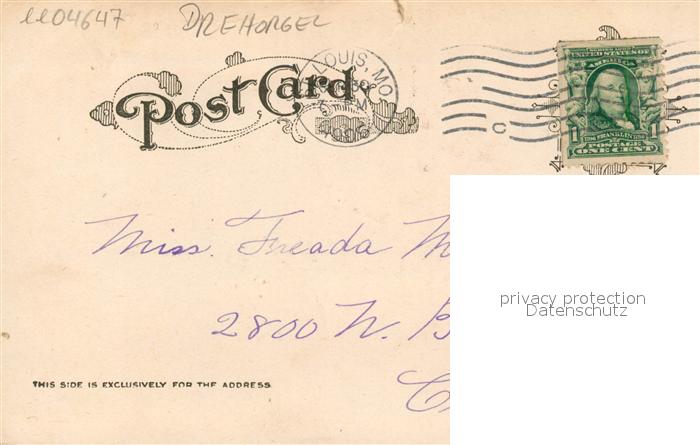 ll04647 DREHORGEL
LOUIS, MO.
Post Card
SERIES 1902
UNITED STATES OF
AMERICA
1 FRANKLIN 1
POSTAGE
ONE CENT
C
Miss. Freada M
privacy protection
Datenschutz
2800 N. B
THIS SIDE IS EXCLUSIVELY FOR THE ADDRESS